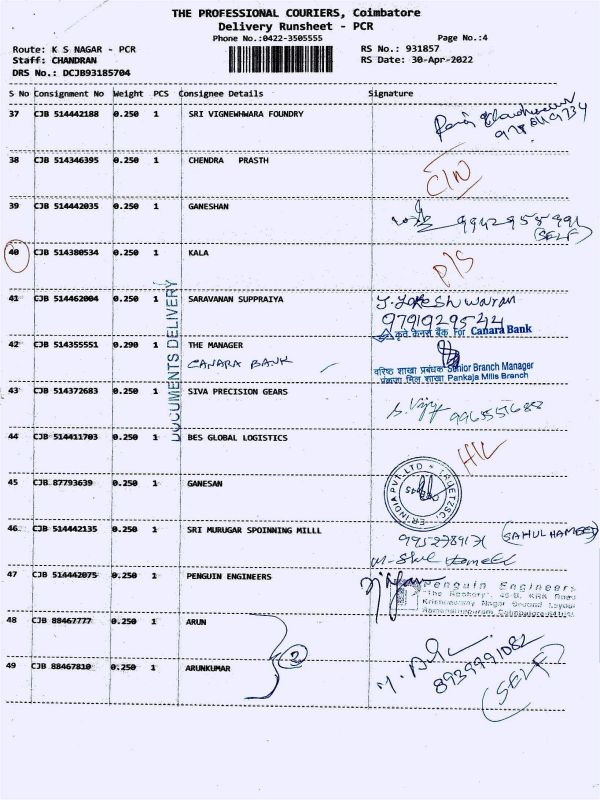 THE PROFESSIONAL COURIERS, Coimbatore
Delivery Runsheet - PCR
Phone No.:0422-3505555
Page No.:4
Route: K S NAGAR - PCR
RS No.: 931857
Staff: CHANDRAN
RS Date: 30-Apr-2022
DRS No.: DCJB93185704
S No Consignment No Weight PCS Consignee Details Signature
37 CJB 514442188 0.250 1 SRI VIGNEWHWARA FOUNDRY
38 CJB 514346395 0.250 1 CHENDRA PRASTH
CIN
39 CJB 514442035 0.250 1 GANESHAN
9942955991
(SELF)
40 CJB 514380534 0.250 1 KALA
D/S
DOCUMENTS DELIVERY
41 CJB 514462004 0.250 1 SARAVANAN SUPPRAIYA
J. Lokeshwaran
9791929544
कृते केनरा बैंक For Canara Bank
42 CJB 514355551 0.290 1 THE MANAGER
CANARA BANK
वरिष्ठ शाखा प्रबंधक Senior Branch Manager
पंकजा मिल शाखा Pankaja Mills Branch
43 CJB 514372683 0.250 1 SIVA PRECISION GEARS
S. Vijay
44 CJB 514411703 0.250 1 BES GLOBAL LOGISTICS
H/L
45 CJB 87793639 0.250 1 GANESAN
46 CJB 514442135 0.250 1 SRI MURUGAR SPOINNING MILLL
(SAHUL HAMEED)
47 CJB 514442075 0.250 1 PENGUIN ENGINEERS
Penguin Engineers
48 CJB 88467777 0.250 1 ARUN
2
49 CJB 88467810 0.250 1 ARUNKUMAR
8939991082
(SELF)